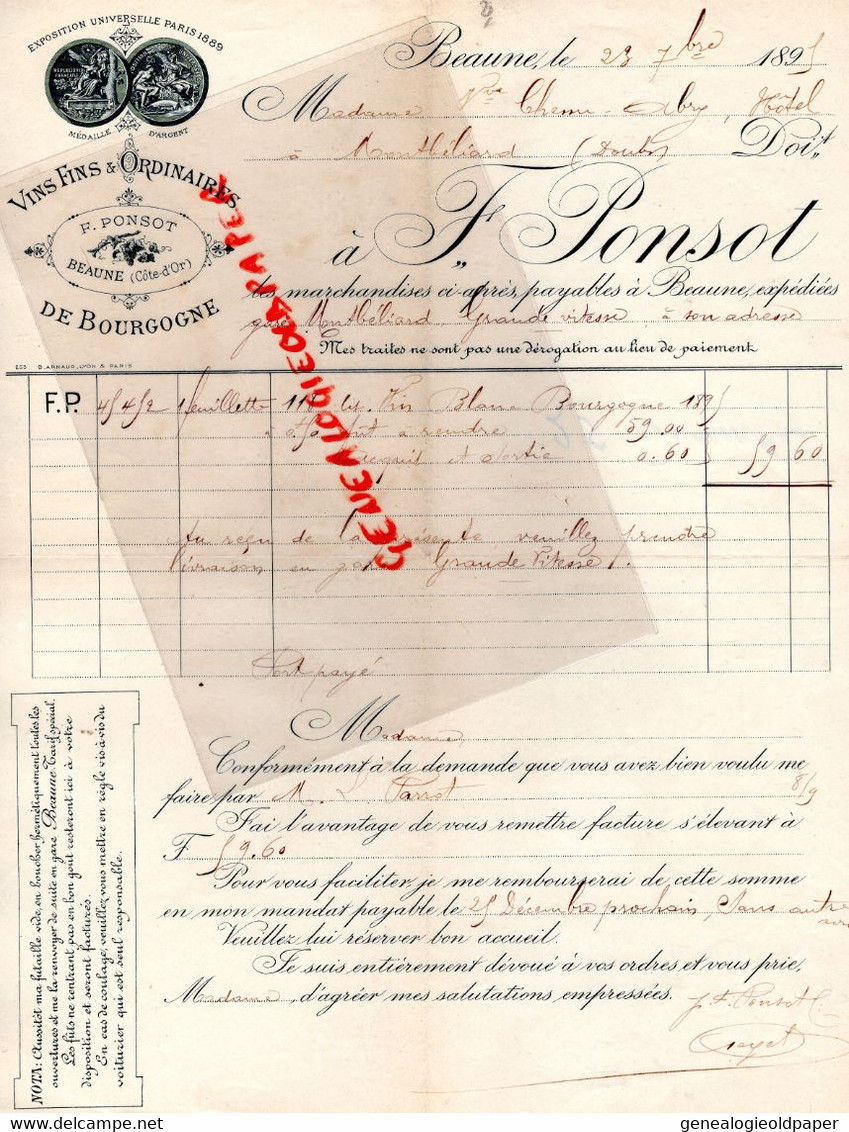 EXPOSITION UNIVERSELLE PARIS 1889
MÉDAILLE D'ARGENT
VINS FINS & ORDINAIRES
F. PONSOT
BEAUNE (Côte-d'Or)
DE BOURGOGNE
G. ARNAUD, LYON & PARIS
Beaune, le 23 7bre 1895
Madame Vve Abry, Hôtel
à Montbéliard (Doubs) Doit
à F. Ponsot
les marchandises ci-après, payables à Beaune, expédiées
gare Montbéliard Grande vitesse à son adresse
Mes traites ne sont pas une dérogation au lieu de paiement.
F.P. 45452 1 feuillette 118 lit. Vin Blanc Bourgogne 189
fût à rendre 59.00
acquit et sortie 0.60 59 60
Au reçu de la présente veuillez prendre
livraison en gare Grande Vitesse.
Port payé
GENEALOGIEOLDPAPER
Madame
Conformément à la demande que vous avez bien voulu me
faire par M. Parrot 8/9
J'ai l'avantage de vous remettre facture s'élevant à
F 59.60
Pour vous faciliter, je me rembourserai de cette somme
en mon mandat payable le 25 Décembre prochain, sans autre
avis
Veuillez lui réserver bon accueil.
Je suis entièrement dévoué à vos ordres et vous prie,
Madame, d'agréer mes salutations empressées.
F. Ponsot
NOTA: Aussitôt ma futaille vide, en boucher hermétiquement toutes les
ouvertures et me la renvoyer de suite en gare Beaune Tarif spécial.
Les fûts ne rentrant pas en bon goût resteront ici à votre
disposition et seront facturés.
En cas de coulage, veuillez vous mettre en règle vis à vis du
voiturier qui est seul responsable.
genealogieoldpaper